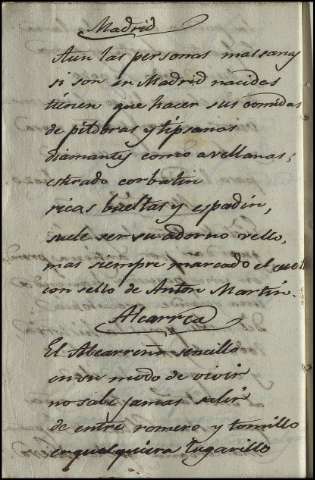 Madrid
Aun las personas mas sanas
si son in Madrid nacidas
tienen que hacer sus comidas
de pildoras y tipsanas
diamantes como avellanas;
estirado corbatin
ricas bueltas y espadin,
suele ser su adorno vello,
mas siempre marcado el cuello
con sello de Anton Martin.
Alcarria
El Alcarreño sencillo
en un modo de vivir
no sabe jamas salir
de entre romero y tomillo
en qualquiera lugarillo